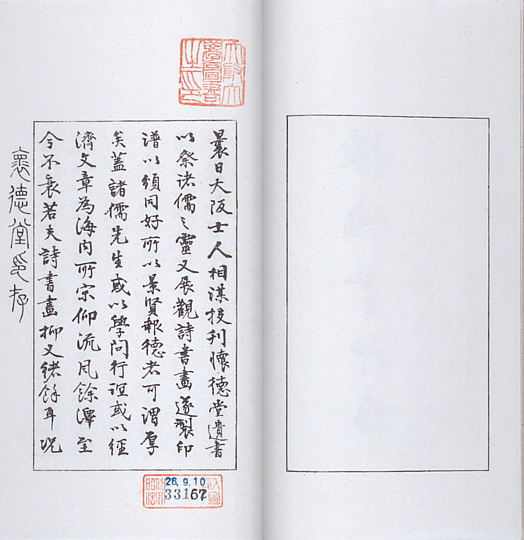 曩日大阪士人相謀校刊懷德堂遺書
以祭諸儒之靈又展觀詩書畫遂製印
譜以頒同好所以景賢報德者可謂厚
矣蓋諸儒先生或以學問行誼或以經
濟文章為海内所宗仰流風餘澤至
今不衰若夫詩書畫抑又緒餘耳況
褱德堂印存
26.9.10
33167